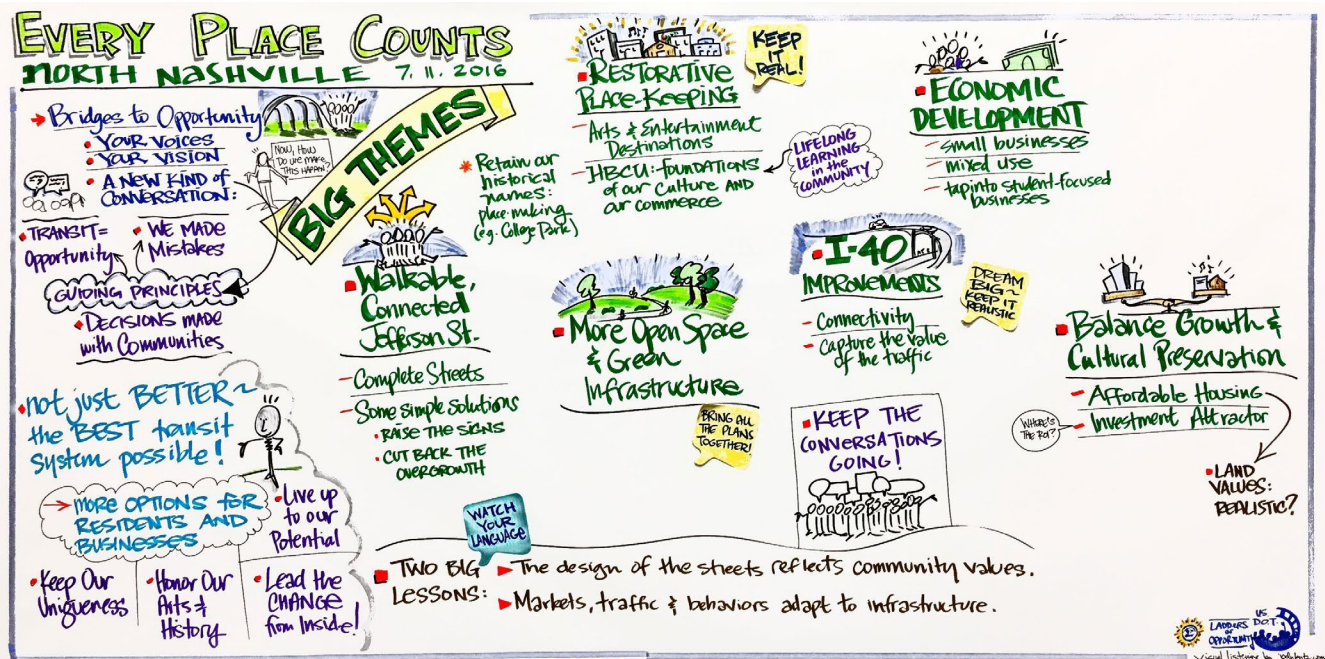 EVERY PLACE COUNTS
NORTH NASHVILLE 7.11.2016
Bridges to Opportunity
YOUR VOICES
YOUR VISION
A NEW KIND OF
CONVERSATION:
NOW, HOW
DO WE MAKE
THIS HAPPEN?
TRANSIT=
Opportunity
WE MADE
Mistakes
GUIDING PRINCIPLES
DECISIONS MADE
with Communities
not just BETTER ~
the BEST transit
system possible!
MORE OPTIONS FOR
RESIDENTS AND
BUSINESSES
Live up
to our
Potential
Keep Our
Uniqueness
Honor Our
Arts &
History
Lead the
CHANGE
from Inside!
BIG THEMES
Walkable,
Connected
Jefferson St.
Complete Streets
Some simple solutions
RAISE THE SIGNS
CUT BACK THE
OVERGROWTH
Retain our
historical
names:
place-making
(e.g. College Park)
RESTORATIVE
PLACE-KEEPING
Arts & Entertainment
Destinations
HBCU: foundations
of our Culture and
our commerce
KEEP
IT
REAL!
LIFELONG
LEARNING
in the
COMMUNITY
ECONOMIC
DEVELOPMENT
small businesses
mixed use
tap into student-focused
businesses
More Open Space
& Green
Infrastructure
BRING ALL
THE PLANS
TOGETHER!
I-40
IMPROVEMENTS
Connectivity
Capture the value
of the traffic
DREAM
BIG ~
KEEP IT
REALISTIC
Balance Growth &
Cultural Preservation
Affordable Housing
Investment Attractor
WHERE'S
THE ROI?
LAND
VALUES:
REALISTIC?
KEEP THE
CONVERSATIONS
GOING!
WATCH
YOUR
LANGUAGE
TWO BIG
LESSONS:
The design of the streets reflects community values.
Markets, traffic & behaviors adapt to infrastructure.
LADDERS
OF
OPPORTUNITY
US
D.O.T.
visual listening by